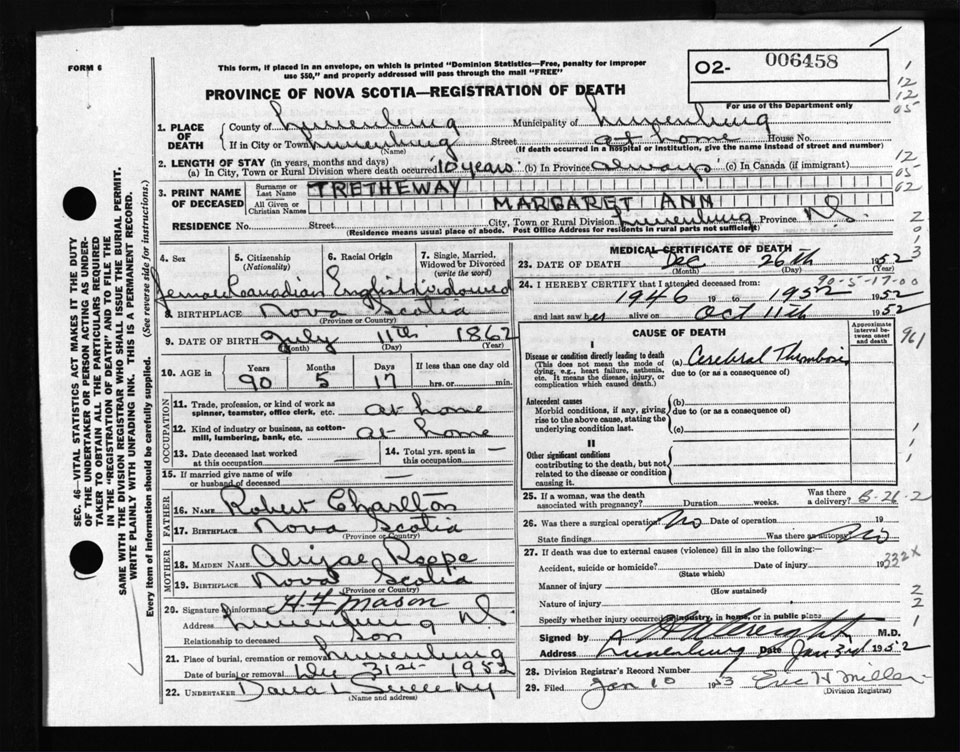 FORM 6
This form, if placed in an envelope, on which is printed "Dominion Statistics—Free, penalty for improper
use $50," and properly addressed will pass through the mail "FREE"
PROVINCE OF NOVA SCOTIA—REGISTRATION OF DEATH
02- 006458
For use of the Department only
1. PLACE OF DEATH
County of Lunenburg Municipality of Lunenburg
If in City or Town Lunenburg Street at home House No.
(Name) (If death occurred in a hospital or institution, give the name instead of street and number)
2. LENGTH OF STAY (in years, months and days)
(a) In City, Town or Rural Division where death occurred 10 years (b) In Province always (c) In Canada (if immigrant)
3. PRINT NAME OF DECEASED
Surname or Last Name TRETHEWAY
All Given or Christian Names MARGARET ANN
RESIDENCE No. Street City, Town or Rural Division Lunenburg Province N.S.
(Residence means usual place of abode. Post Office Address for residents in rural parts not sufficient)
4. Sex
Female
5. Citizenship
(Nationality)
Canadian
6. Racial Origin
English
7. Single, Married,
Widowed or Divorced
(write the word)
Widowed
8. BIRTHPLACE Nova Scotia
(Province or Country)
9. DATE OF BIRTH July 11th 1862
(Month) (Day) (Year)
10. AGE in Years Months Days If less than one day old
90 5 17 hrs. or min.
OCCUPATION
11. Trade, profession, or kind of work as
spinner, teamster, office clerk, etc. at home
12. Kind of industry or business, as cotton-
mill, lumbering, bank, etc. at home
13. Date deceased last worked
at this occupation —
14. Total yrs. spent in
this occupation —
15. If married give name of wife
or husband of deceased
FATHER
16. NAME Robert Charlton
17. BIRTHPLACE Nova Scotia
(Province or Country)
MOTHER
18. MAIDEN NAME
19. BIRTHPLACE Nova Scotia
(Province or Country)
20. Signature of informant H. F. Mason
Address Lunenburg N.S.
Relationship to deceased Son
21. Place of burial, cremation or removal Lunenburg
Date of burial or removal Dec 31st 1952
22. UNDERTAKER
(Name and address)
MEDICAL CERTIFICATE OF DEATH
23. DATE OF DEATH Dec 26th 1952
(Month) (Day) (Year)
24. I HEREBY CERTIFY that I attended deceased from: 90-5-17-00
1946 19 to 1952 1952
and last saw her alive on Oct 11th 1952
CAUSE OF DEATH
Approximate
interval be-
tween onset
and death
I
Disease or condition directly leading to death
(This does not mean the mode of
dying, e.g., heart failure, asthenia,
etc. It means the disease, injury, or
complication which caused death.)
(a) Cerebral Thrombosis
due to (or as a consequence of)
Antecedent causes
Morbid conditions, if any, giving
rise to the above cause, stating the
underlying condition last.
(b)
due to (or as a consequence of)
(c)
II
Other significant conditions
contributing to the death, but not
related to the disease or condition
causing it.
25. If a woman, was the death
associated with pregnancy? Duration weeks. Was there a delivery?
26. Was there a surgical operation? No Date of operation 19
State findings Was there an autopsy? No
27. If death was due to external causes (violence) fill in also the following:—
Accident, suicide or homicide? Date of injury 19
(State which)
332X
Manner of injury
(How sustained)
Nature of injury
Specify whether injury occurred in industry, in home, or in public place
Signed by M.D.
Address Lunenburg Date Jan 3rd 1952
28. Division Registrar's Record Number
29. Filed Jan 10 1953 Eric H Miller
(Division Registrar)
SEC. 46—VITAL STATISTICS ACT MAKES IT THE DUTY
OF THE UNDERTAKER OR PERSON ACTING AS UNDER-
TAKER TO OBTAIN ALL THE PARTICULARS REQUIRED
IN THE "REGISTRATION OF DEATH" AND TO FILE THE
SAME WITH THE DIVISION REGISTRAR WHO SHALL ISSUE THE BURIAL PERMIT.
WRITE PLAINLY WITH UNFADING INK. THIS IS A PERMANENT RECORD.
Every item of information should be carefully supplied. (See reverse side for instructions.)